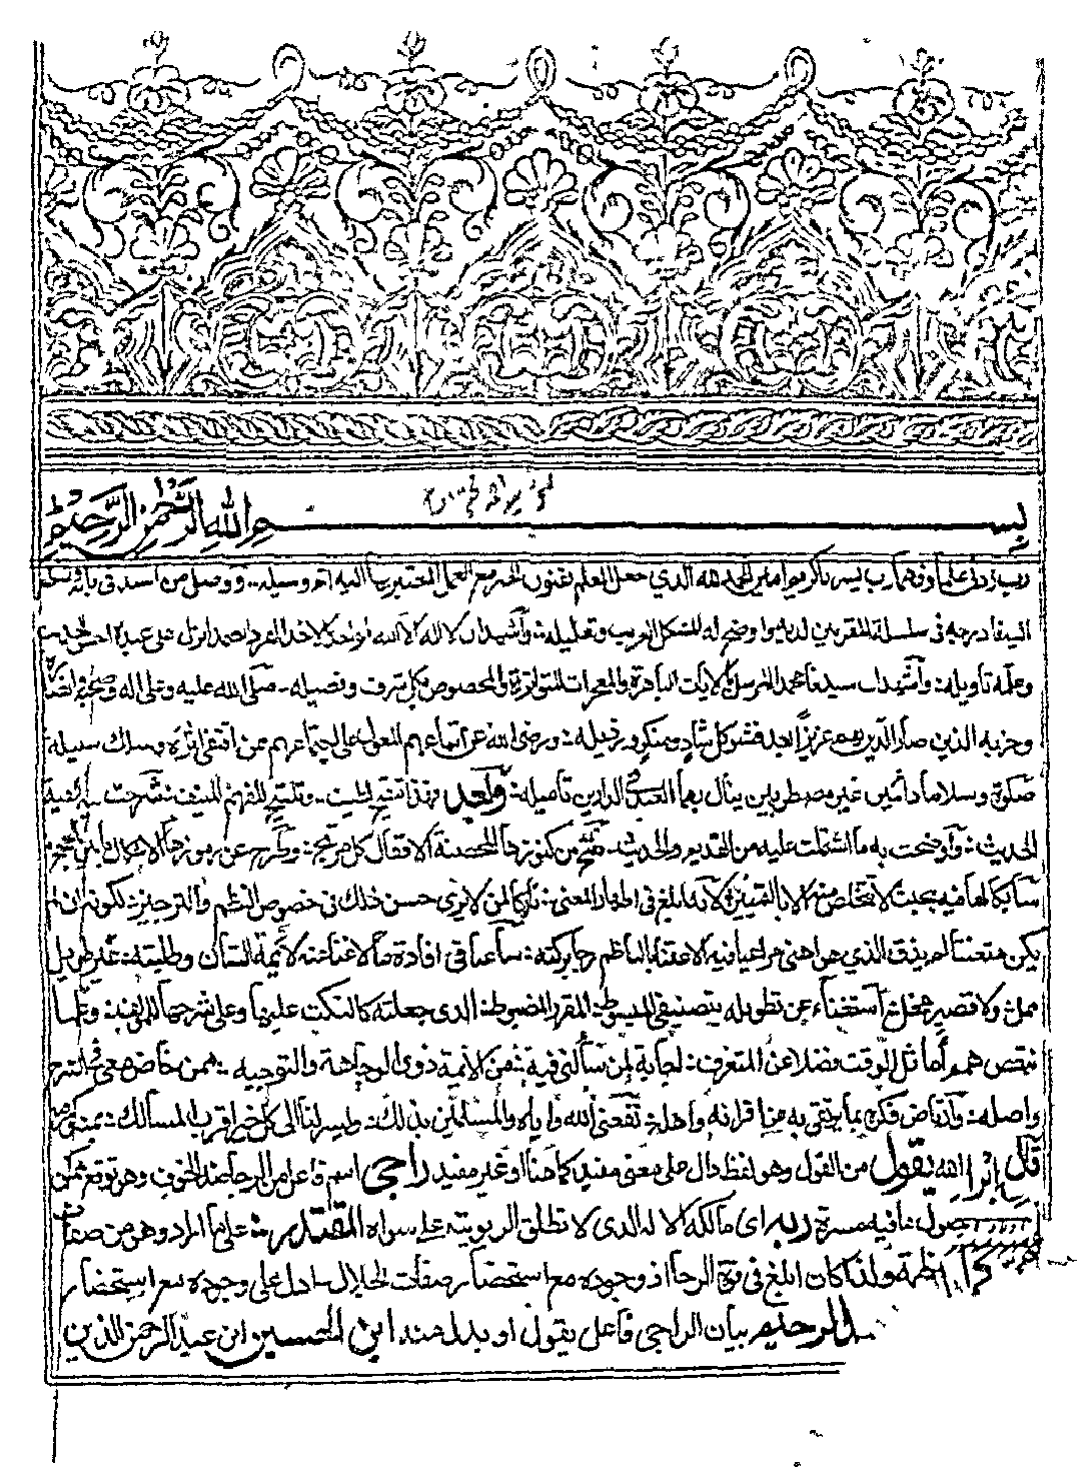 بسم الله الرحمن الرحيم
رب زدني علما وفهما رب يسر ياكريم امين الحمد لله الذي جعل العلم بفنون الخبر مع العمل المعتبر بها اليه اتم وسيله ووصل من اسند في بابه
فادرجه في سلسلة المقربين لديه واوضح له المشكل الغريب وتعليله وأشهد ان لا اله الا الله الواحد الاحد الفرد الصمد انزل على عبده احسن الحديث
وعلمه تأويله وأشهد ان سيدنا محمدا المرسل بالايات الباهرة والمعجزات المتواترة والمخصوص بكل شرف وفضيله صلى الله عليه وعلى اله وصحبه
وحزبه الذين صار الدين بهم عزيزا بعد فشو كل شاذ ومنكر ورذيله ورضي الله عن اتباعهم المعول على اجتماعهم ممن اقتفى اثره وسلك سبيله
صلوة وسلاما دائمين غير مضطربين ينال بهما العبد في الدارين تأميله وبعد فهذا تنقيح لطيف وتلقيح للفهم المنيف شرحت فيه الفية
الحديث وأوضحت به ما اشتملت عليه من القديم والحديث ففتح من كنوزها المحصنة الاقفال كل مرتج وطرح عن رموزها الاشكال بابين الحجج
سابكا لها فيه بحيث لا تتخلص منه الا بالتمييز لانه ابلغ في اظهار المعنى تاركا لمن لا يرى حسن ذلك في خصوص النظم والترجيز لكونه ان لم
يكن متعنتا لم يذق الذي هو اهنى مراعيا فيه الاعتناء بالناظم رجاء بركته ساعيا في افادة ما لا غناء عنه لائمة الشأن وطلبته غير طويل
ممل ولا قصير مخل استغناء عن تطويله بتصنيفي المبسوط المقرر المضبوط الذي جعلته كالنكت عليها وعلى شرحها للمؤلف وعلما
بنقص همم أماثل الوقت فضلا عن المتعرف اجابة لمن سألني فيه من الائمة ذوي الوجاهة والتوجيه ممن خاض معي في الشرح
واصله وارتاض فكره بما يرتقي به من اقرانه واهله نفعني الله واياه والمسلمين بذلك ويسر لنا الى كل خير اقرب المسالك بمنه وكرمه
قال الله يقول من القول وهو لفظ دال على معنى مفيد كما هنا او غير مفيد راجي اسم فاعل من الرجاء ضد الخوف وهو توقع ممكن
حصول ما فيه مسرة ربه اي مالكه الاله الذي لا تطلق الربوبية على سواه المقتدر على ما اراد وهو من صفات
العظمة ولذا كان ابلغ في قوة الرجاء اذ وجوده مع استحضار صفات الجلال ادل على وجوده مع استحضار
الرحيم بيان الراجي فاعل يقول او بدل منه ابن الحسين ابن عبد الرحمن الزين